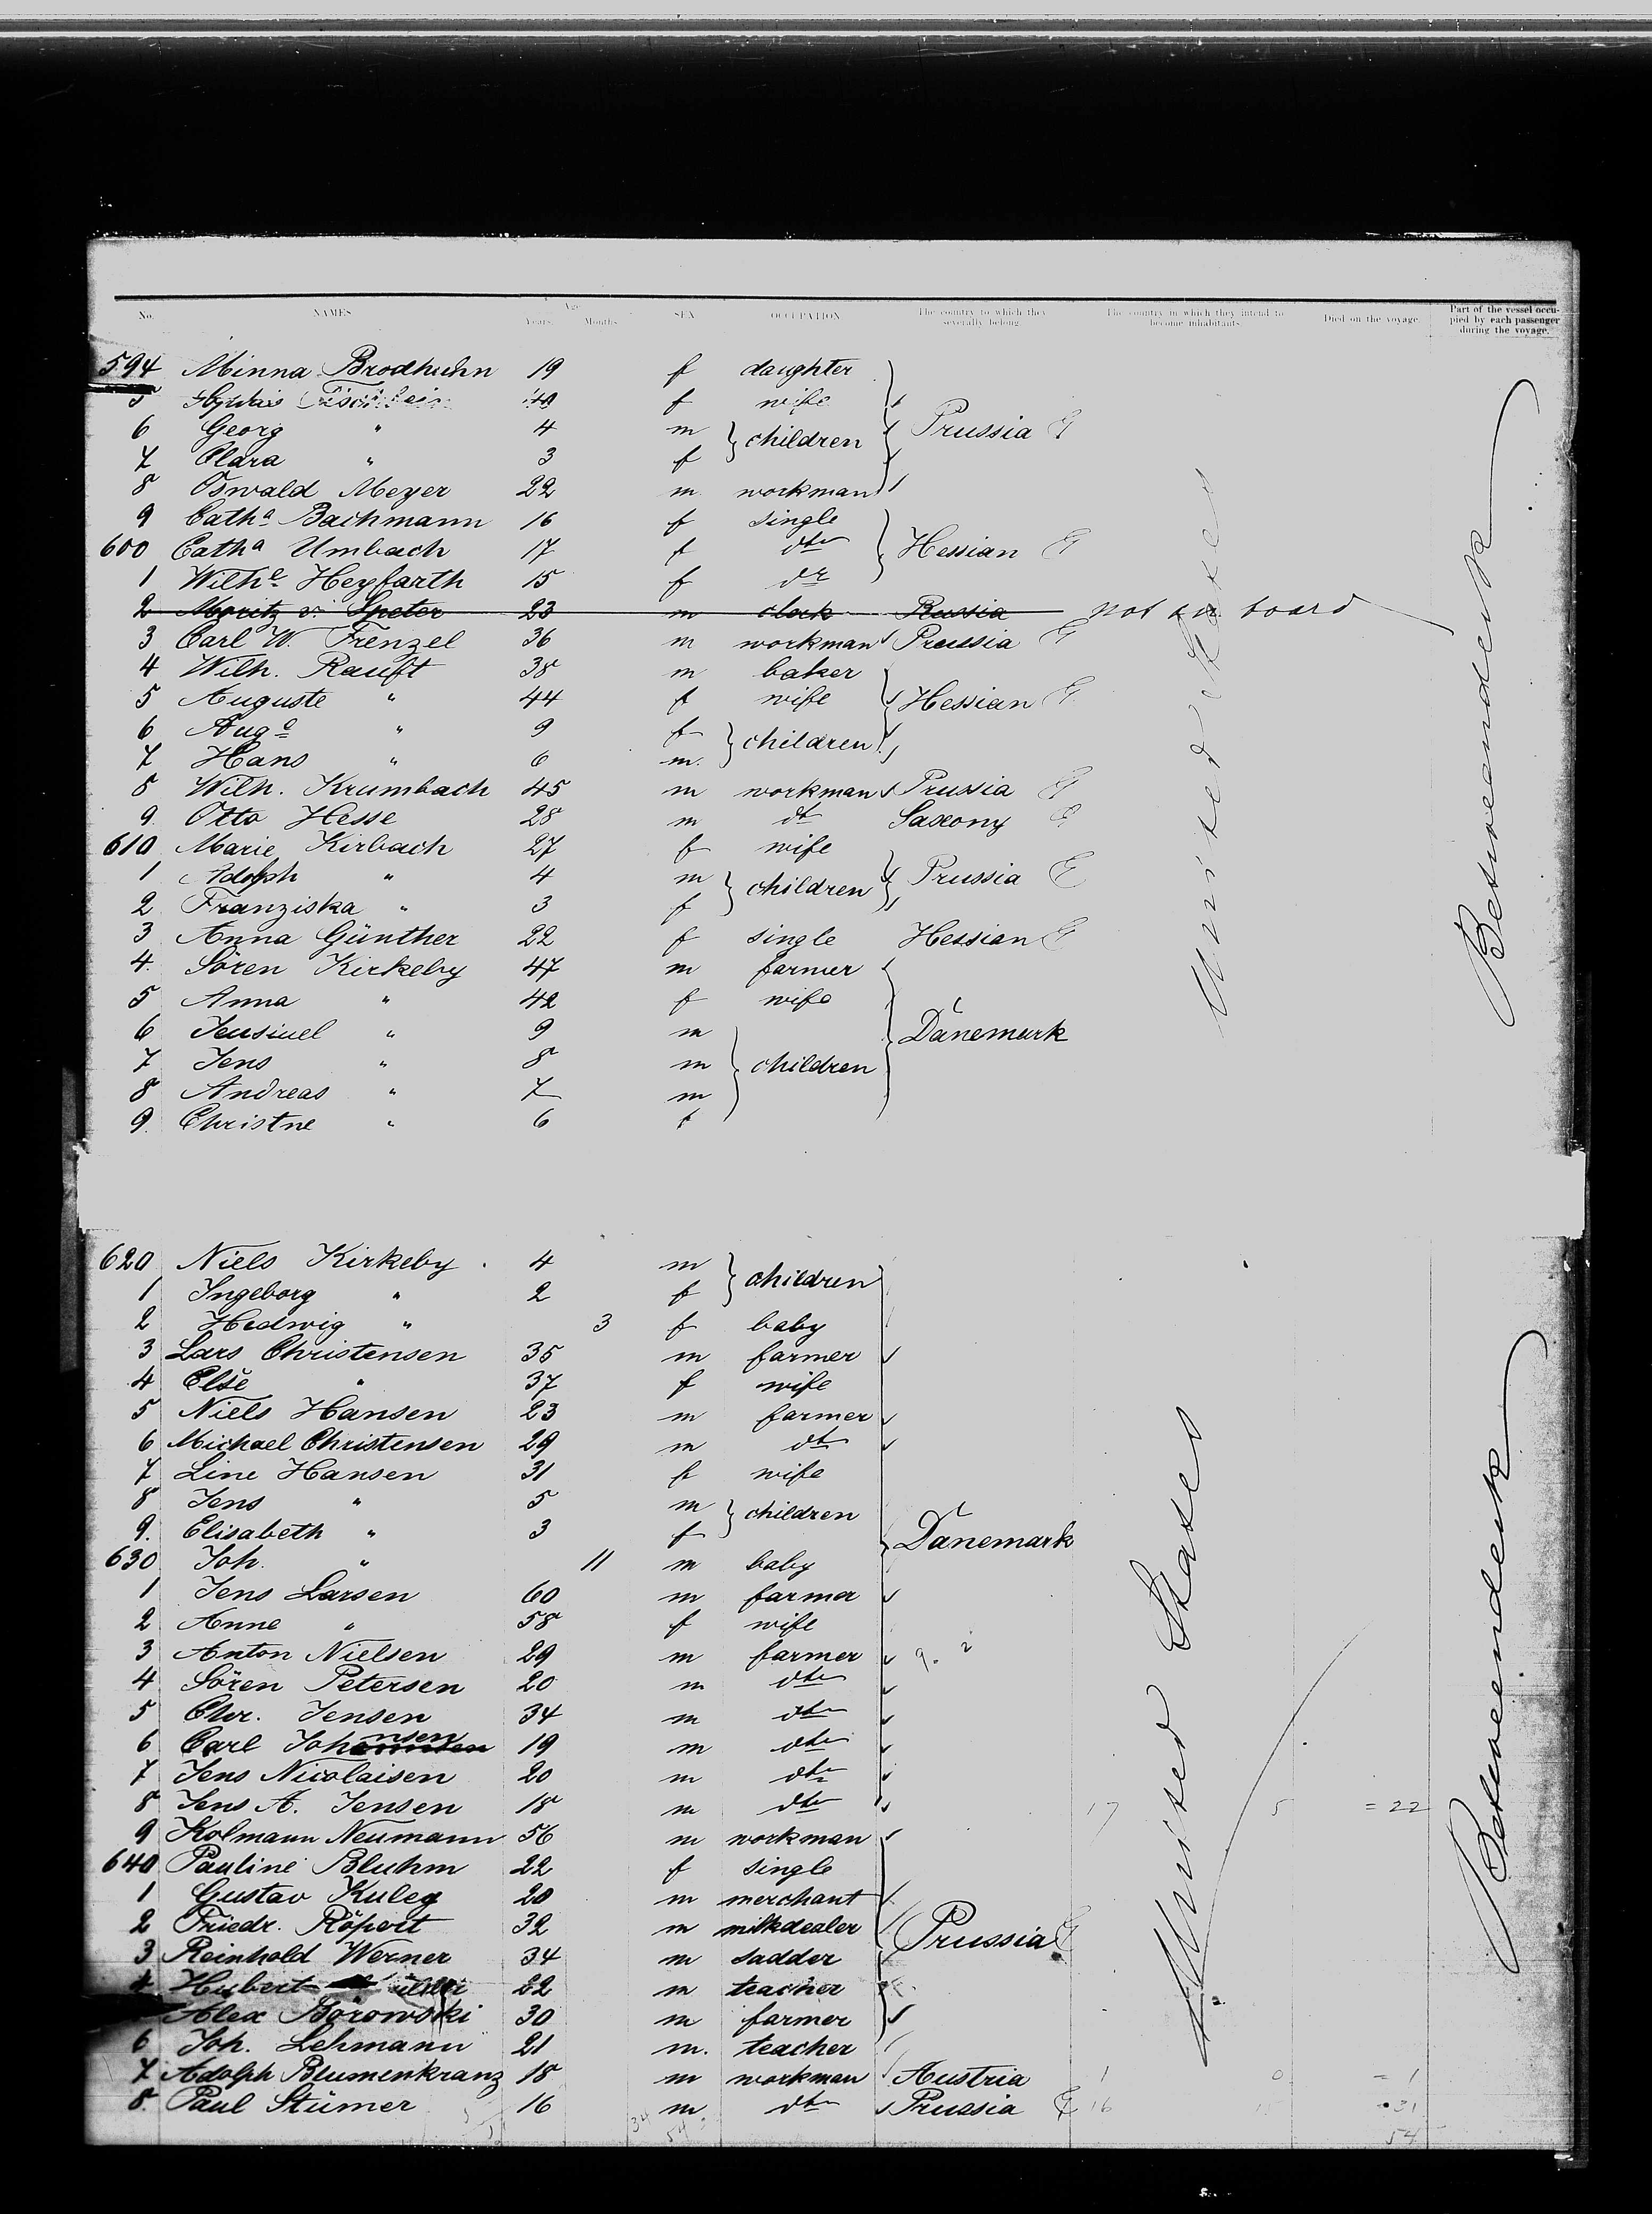 No. NAMES Age Years. Months. SEX OCCUPATION The country to which they severally belong. The country in which they intend to become inhabitants. Died on the voyage. Part of the vessel occupied by each passenger during the voyage.
594 Minna Brodhuhn 19 f daughter
5 f wife
6 Georg " 4 m children Prussia
7 Clara " 3 f
8 Oswald Meyer 22 m workman
9 Catha Bachmann 16 f single
600 Catha Umbach 17 f dto Hessian
1 Wilhe Heyfarth 15 f do
2 Moritz v. Speter 23 m clerk Russia not on board
3 Carl W. Frenzel 36 m workman Prussia
4 Wilh. Rauft 38 m baker
5 Auguste " 44 f wife Hessian
6 Auge " 9 f children
7 Hans " 6 m.
8 Wilh. Krumbach 45 m workman Prussia
9. Otto Hesse 28 m dt Saxony
610 Marie Kirbach 27 f wife
1 Adolph " 4 m children Prussia
2 Franziska " 3 f
3 Anna Günther 22 f single Hessian
4. Sören Kirkeby 47 m farmer
5 Anna " 42 f wife
6 " 9 m Dänemark
7 Jens " 8 m children
8 Andreas " 7 m
9. Christne " 6 f
United States
Betweendeck
620 Niels Kirkeby 4 m children
1 Ingeborg " 2 f
2 Hedwig " 3 f baby
3 Lars Christensen 35 m farmer
4 Else " 37 f wife
5 Niels Hansen 23 m farmer
6 Michael Christensen 29 m dto
7 Line Hansen 31 f wife
8 Jens " 5 m children
9. Elisabeth " 3 f Dänemark
630 Joh. " 11 m baby
1 Jens Larsen 60 m farmer
2 Anne " 58 f wife
3 Anton Nielsen 29 m farmer
4 Sören Petersen 20 m dto
5 Chr. Jensen 34 m dto
6 Carl Johansen 19 m dto
7 Jens Nicolaisen 20 m dto
8 Jens A. Jensen 18 m dto 17 5 = 22
9 Kolmann Neumann 56 m workman
640 Pauline Bluhm 22 f single
1 Gustav Kuleg 20 m merchant
2 Friedr. Röpert 32 m milkdealer Prussia
3 Reinhold Werner 34 m sadder
4 Hubert 22 m teacher
Alex Borowski 30 m farmer
6 Joh. Lehmann 21 m. teacher
7 Adolph Blumenkranz 18 m workman Austria 1 0 = 1
8. Paul Stümer 16 m dto Prussia 16 31
54
United States
Betweendeck